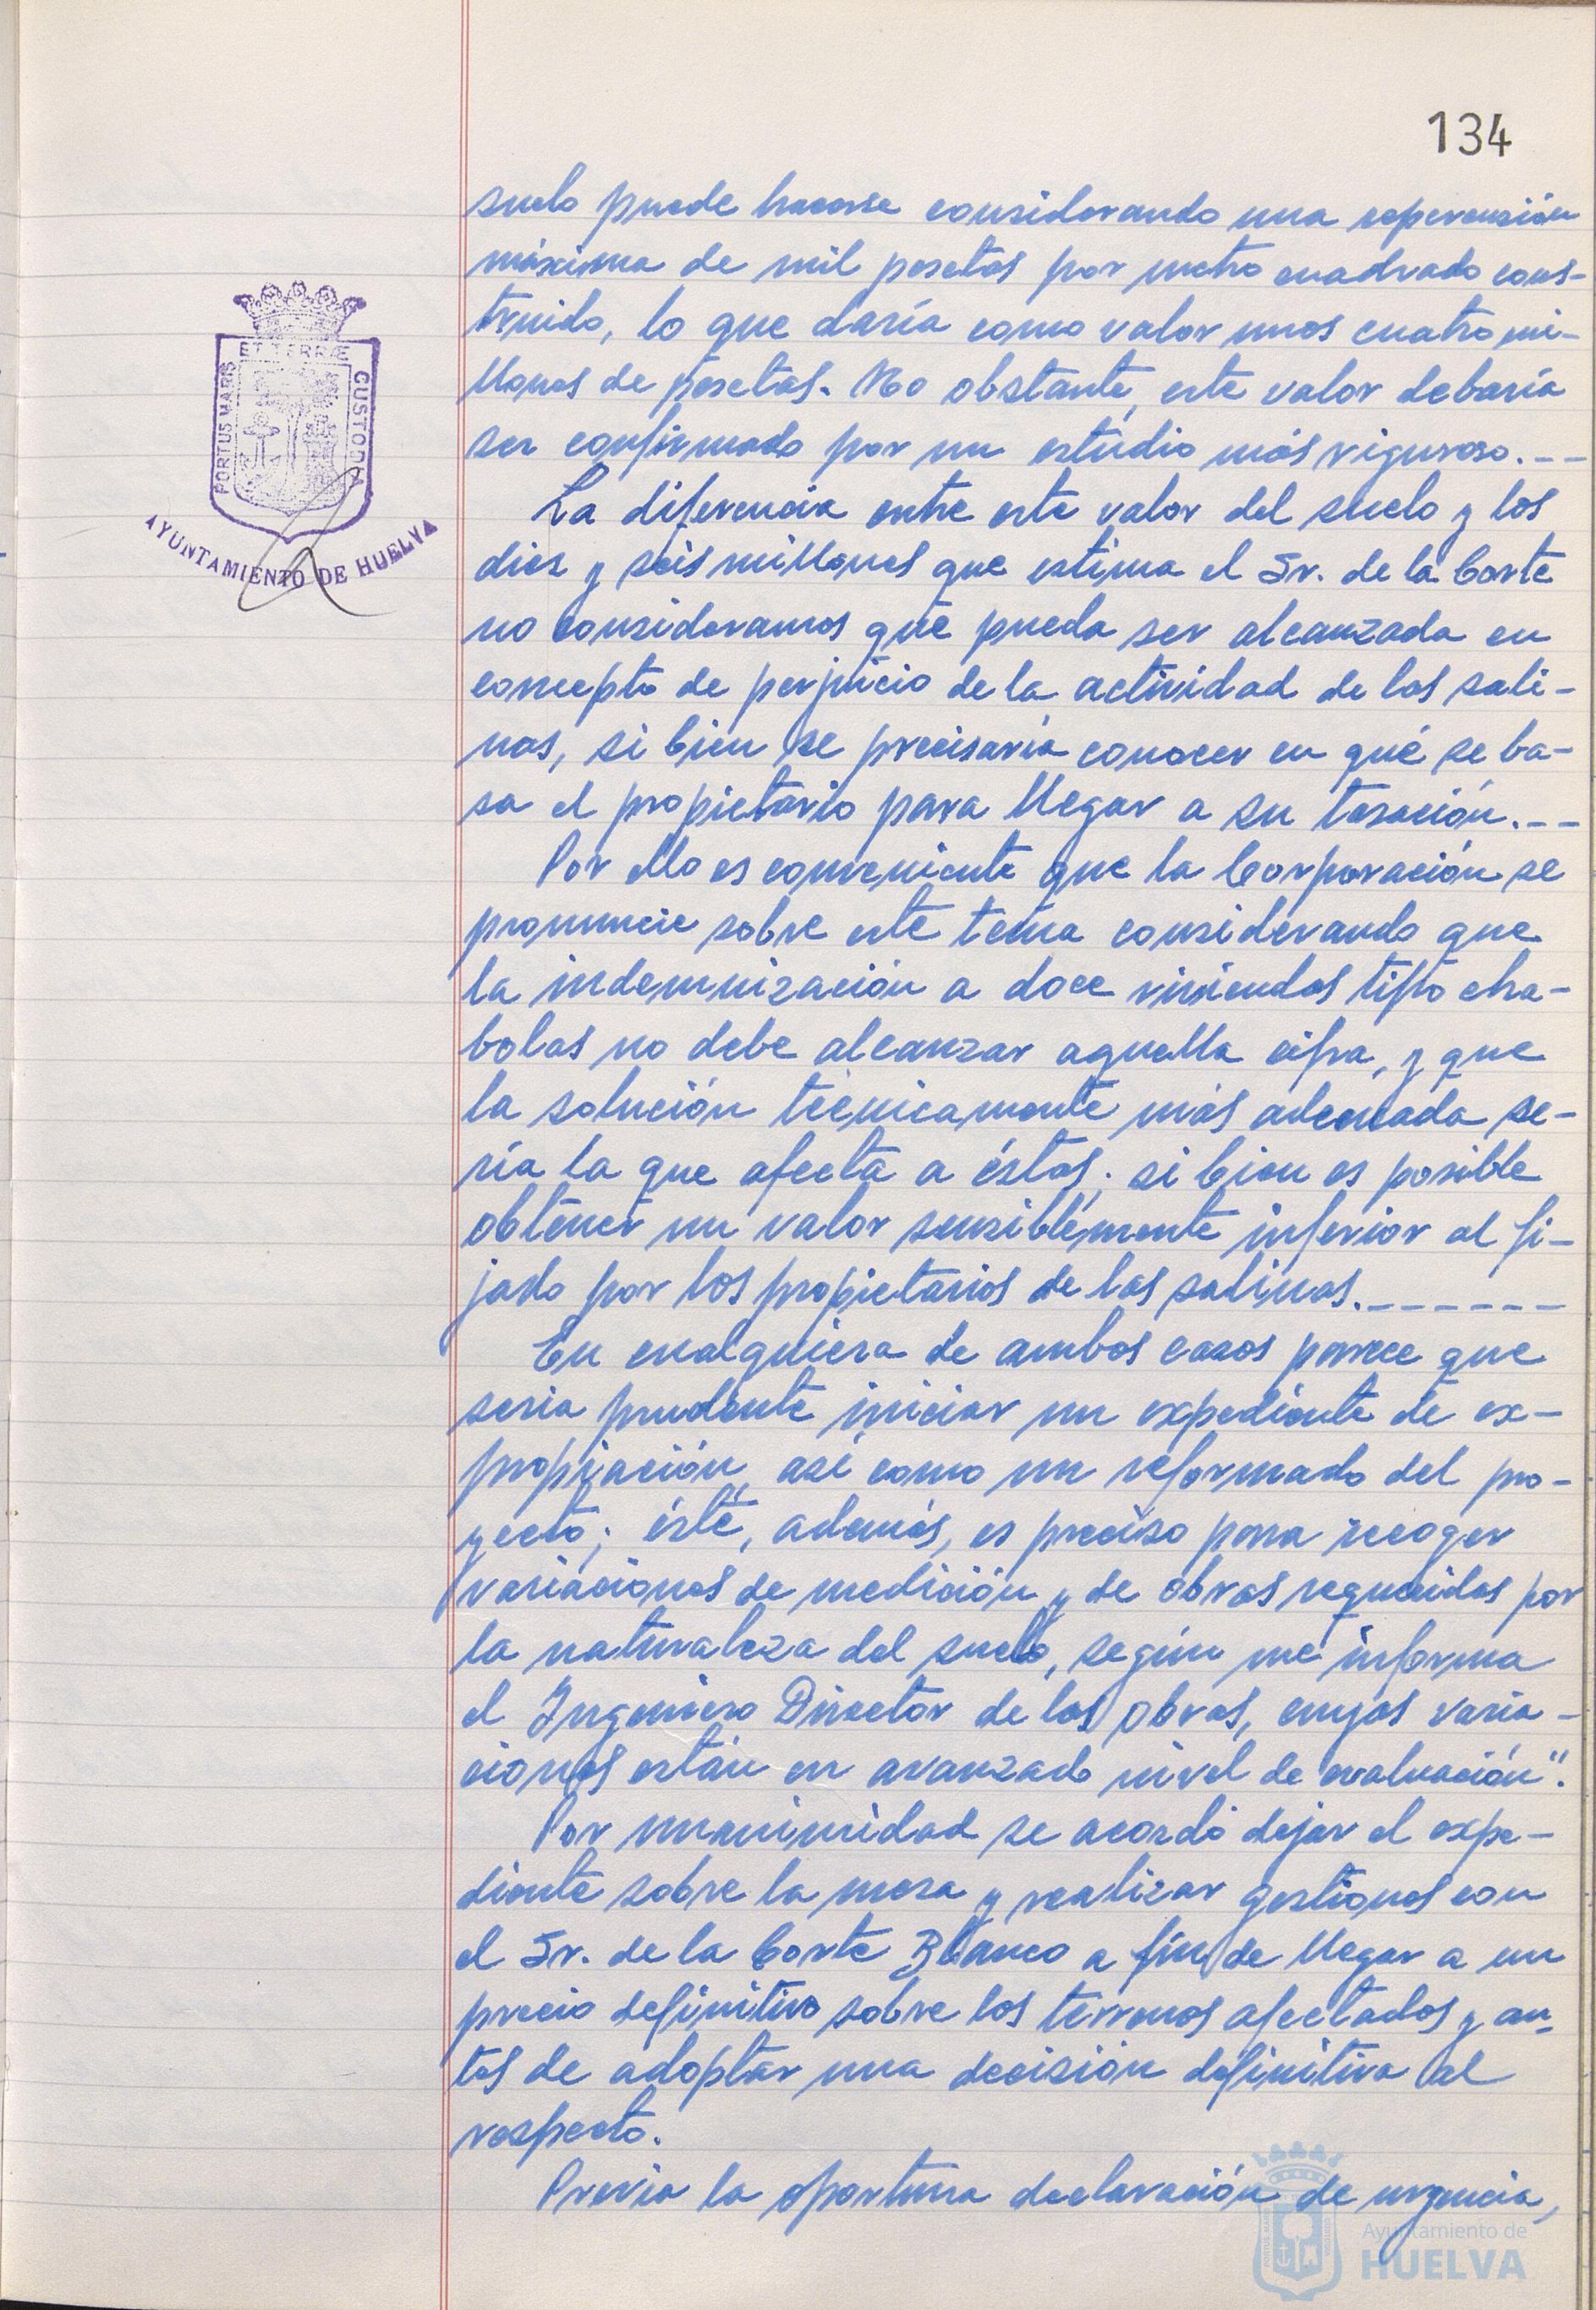 134
suelo puede hacerse considerando una repercusión
máxima de mil pesetas por metro cuadrado cons-
truido, lo que daría como valor unos cuatro mi-
llones de pesetas. No obstante, este valor debería
ser confirmado por un estudio más riguroso.--
La diferencia entre este valor del suelo y los
diez y seis millones que estima el Sr. de la Corte
no consideramos que pueda ser alcanzada en
concepto de perjuicio de la actividad de las sali-
nas, si bien se precisaría conocer en qué se ba-
sa el propietario para llegar a su tasación.--
Por ello es conveniente que la Corporación se
pronuncie sobre este tema considerando que
la indemnización a doce viviendas tipo cha-
bolas no debe alcanzar aquella cifra, y que
la solución técnicamente más adecuada se-
ría la que afecta a éstas; si bien es posible
obtener un valor sensiblemente inferior al fi-
jado por los propietarios de las salinas.-------
En cualquiera de ambos casos parece que
seria prudente iniciar un expediente de ex-
propiación, así como un reformado del pro-
yecto; éste, además, es preciso para recoger
variaciones de medición y de obras requeridas por
la naturaleza del suelo, según me informa
el Ingeniero Director de las obras, cuyas varia-
ciones están en avanzado nivel de evaluación".
Por unanimidad se acordó dejar el expe-
diente sobre la mesa y realizar gestiones con
el Sr. de la Corte Blanco a fin de llegar a un
precio definitivo sobre los terrenos afectados y an-
tes de adoptar una decisión definitiva al
respecto.
Previa la oportuna declaración de urgencia,
PORTUS MARIS
ET TERRÆ
CUSTODIA
AYUNTAMIENTO DE HUELVA
Ayuntamiento de
HUELVA